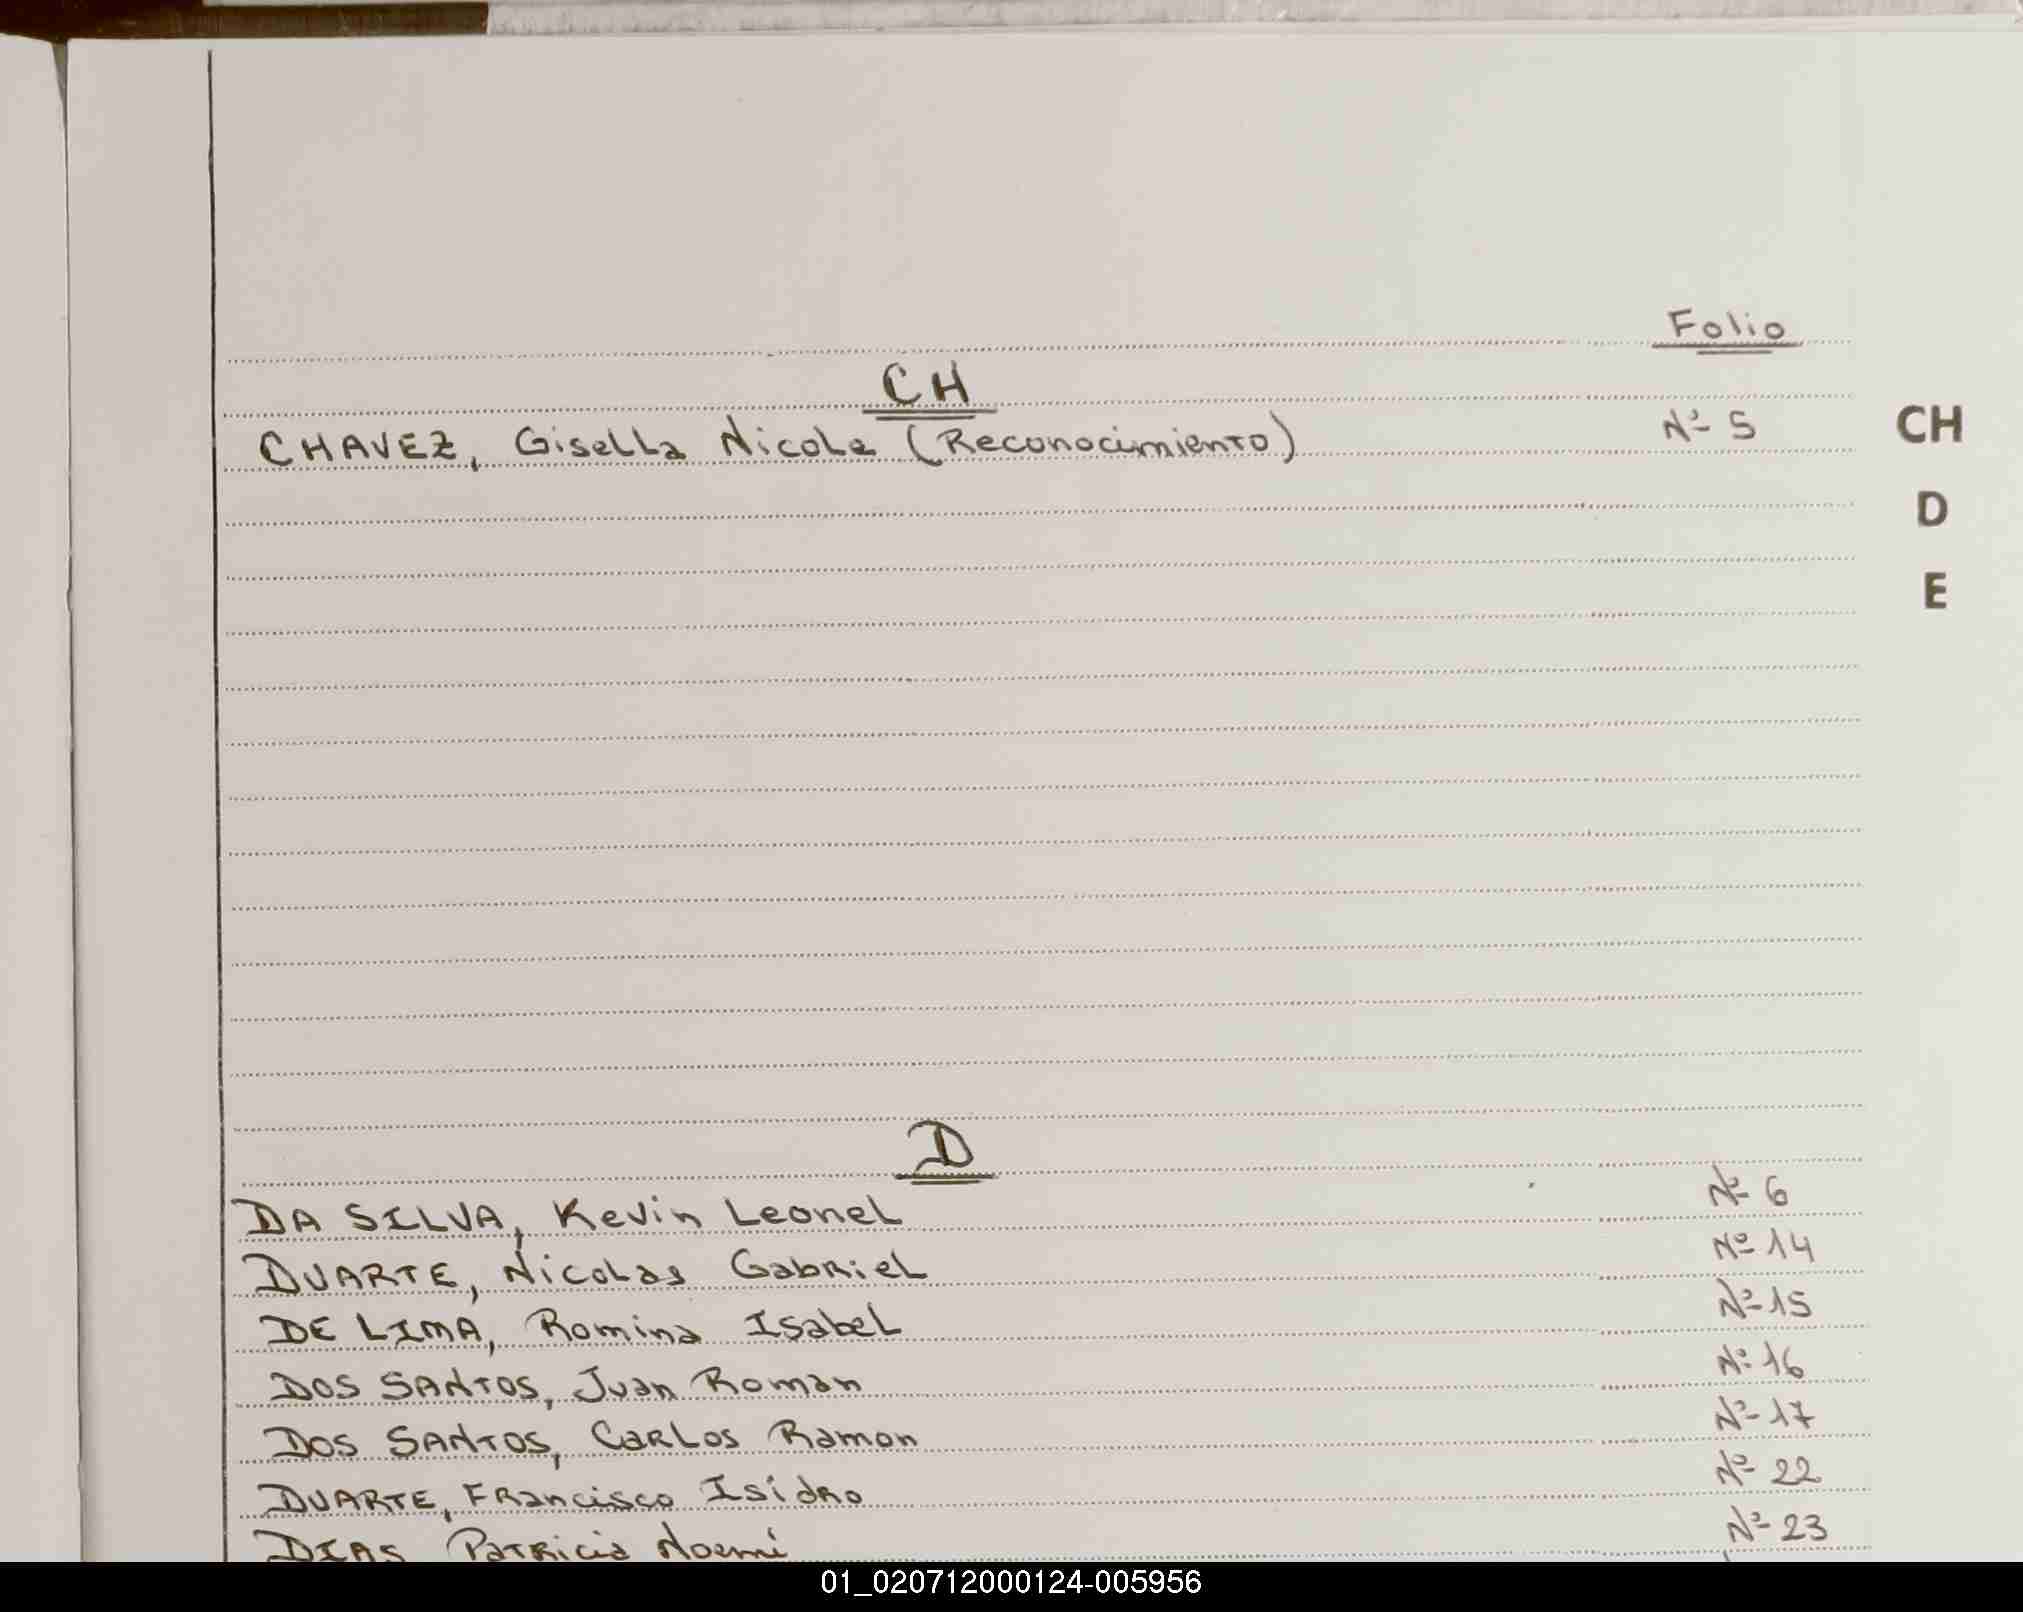 Folio
CH
CHAVEZ, Gisella Nicole (Reconocimiento) Nº 5
CH
D
E
D
DA SILVA, Kevin Leonel Nº 6
DUARTE, Nicolas Gabriel Nº 14
DE LIMA, Romina Isabel Nº 15
DOS SANTOS, Juan Roman Nº 16
DOS SANTOS, Carlos Ramon Nº 17
DUARTE, Francisco Isidro Nº 22
DIAS Patricia Noemi Nº 23
01_020712000124-005956